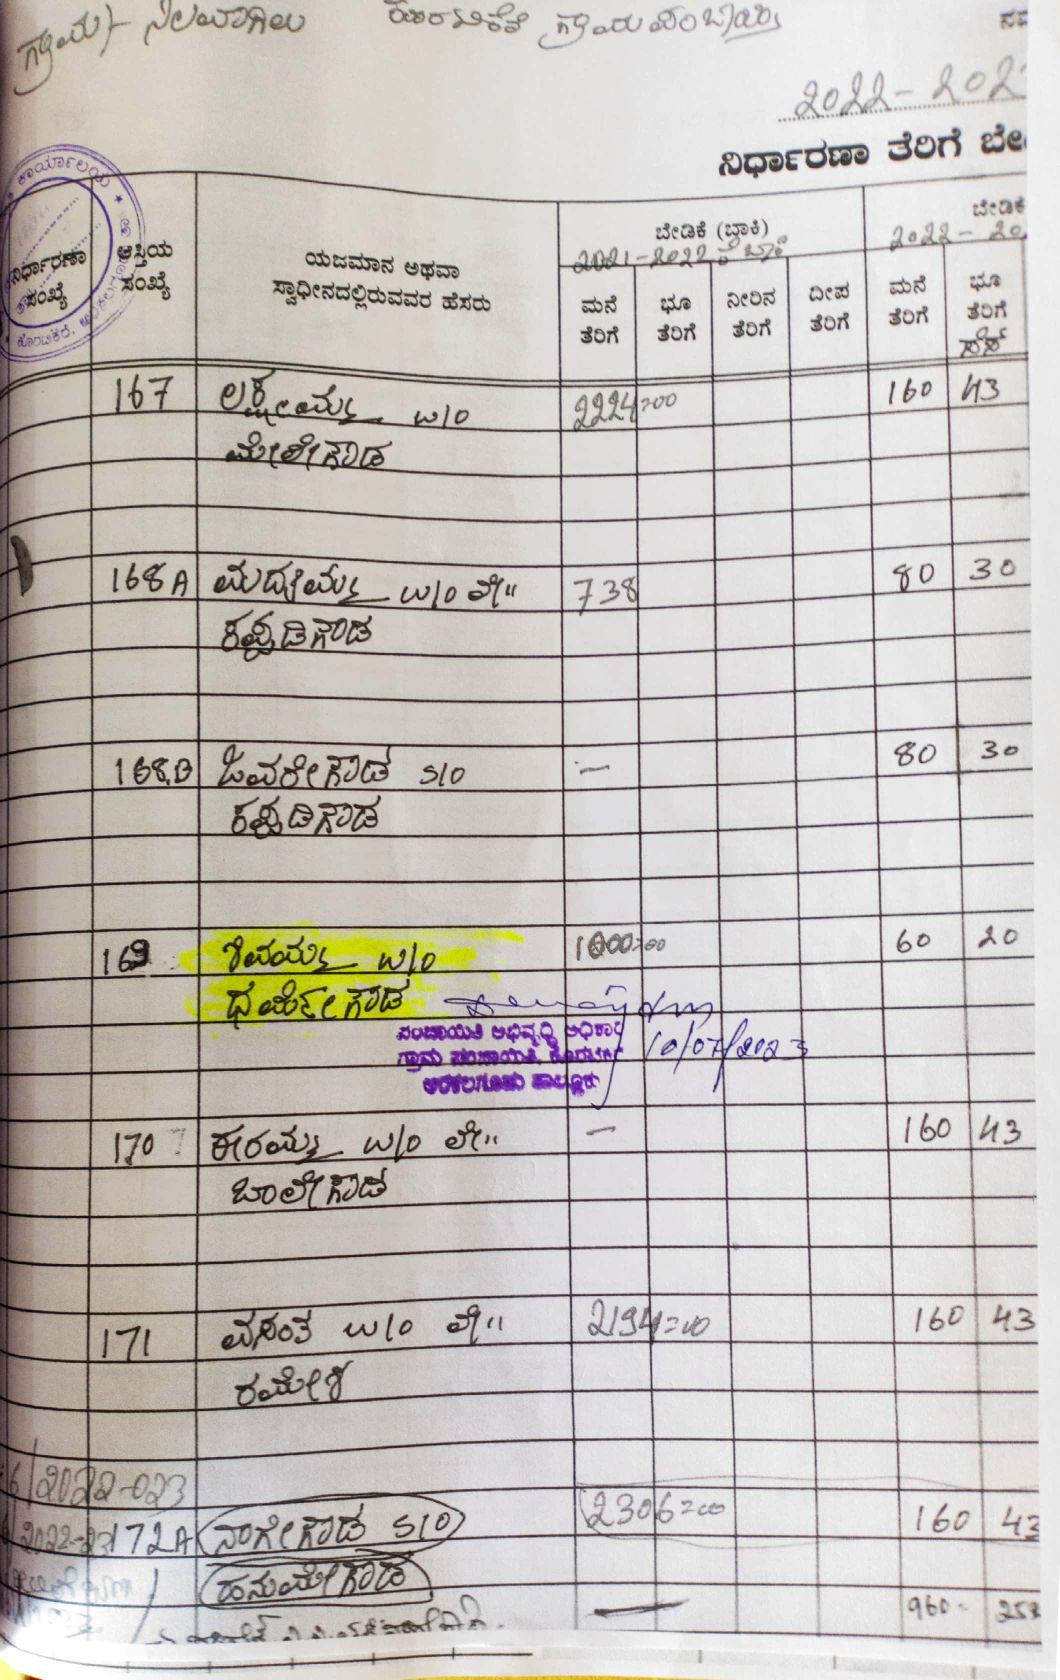 ಗ್ರಾಮ/- ನಿಲವಾಗಿಲು ಗ್ರಾಮ ಪಂಚಾಯ್ತಿ
2022-202
ನಿರ್ಧಾರಣಾ ತೆರಿಗೆ ಬೇ
ಕಾರ್ಯಾಲಯ
ನಿರ್ಧಾರಣಾ ಸಂಖ್ಯೆ
ಆಸ್ತಿಯ ಸಂಖ್ಯೆ
ಯಜಮಾನ ಅಥವಾ
ಸ್ವಾಧೀನದಲ್ಲಿರುವವರ ಹೆಸರು
ಬೇಡಿಕೆ (ಬ್ರಾಕಿ)
2021-2022
ಬೇಡಿಕೆ
2022-20
ಮನೆ ತೆರಿಗೆ
ಭೂ ತೆರಿಗೆ
ನೀರಿನ ತೆರಿಗೆ
ದೀಪ ತೆರಿಗೆ
ಮನೆ ತೆರಿಗೆ
ಭೂ ತೆರಿಗೆ
ಸೆಸ್
167 ಲಕ್ಷ್ಮಮ್ಮ w/o 2224=00 160 43
ಮೇಲೇಗೌಡ
168A ಮುದ್ದಮ್ಮ w/o ಲೇ" 738 80 30
ಕಪ್ಪಡಿಗೌಡ
168B ಜವರೇಗೌಡ s/o - 80 30
ಕಪ್ಪಡಿಗೌಡ
169 ಶಿವಮ್ಮ w/o 1000=00 60 20
ಧರ್ಮೇಗೌಡ
ಪಂಚಾಯಿತಿ ಅಭಿವೃದ್ಧಿ ಅಧಿಕಾರಿ
10/07/2023
ಗ್ರಾಮ ಪಂಚಾಯಿತಿ,
ಅರಕಲಗೂಡು ತಾಲ್ಲೂಕು
170 ಈರಮ್ಮ w/o ಲೇ" - 160 43
ಬಾಲೇಗೌಡ
171 ವಸಂತ w/o ಲೇ" 2194=00 160 43
ರಮೇಶ
6/2022-023
2022-23 172A ನಾಗೇಗೌಡ s/o 2306=00 160 43
ಹನುಮೇಗೌಡ
960- 252